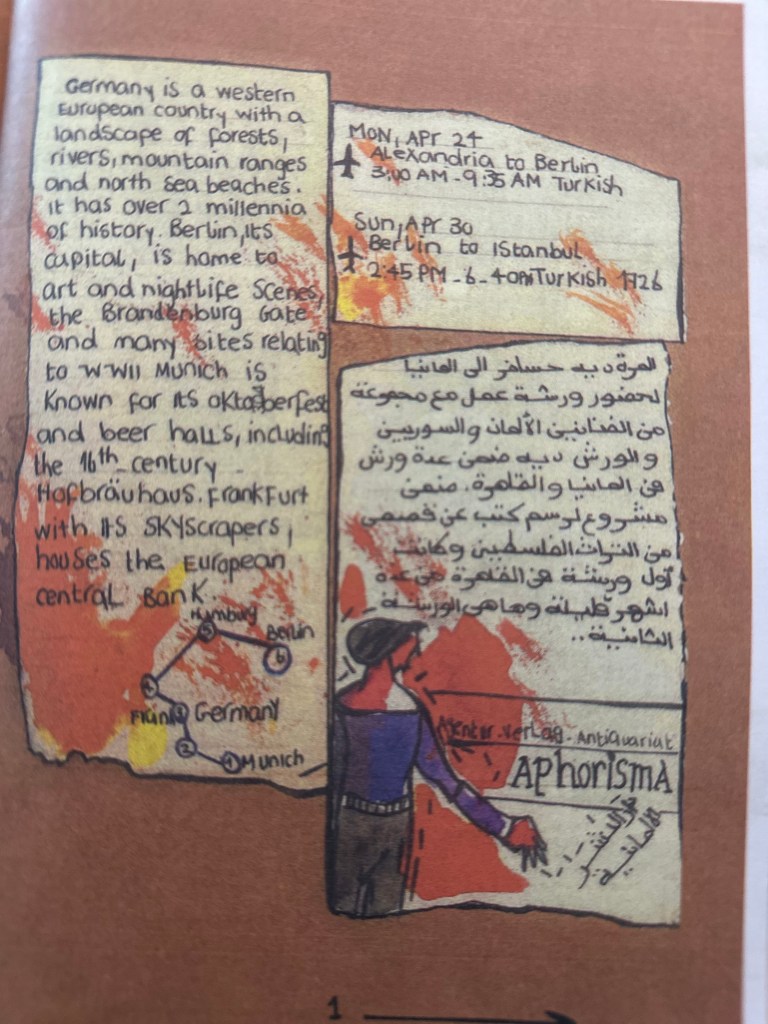 Germany is a western
European country with a
landscape of forests,
rivers, mountain ranges
and north sea beaches.
It has over 2 millennia
of history. Berlin, its
capital, is home to
art and nightlife scenes,
the Brandenburg Gate
and many sites relating
to WWII Munich is
Known for its oktoberfest
and beer halls, including
the 16th century
Hofbräuhaus. Frankfurt
with its SKYscrapers,
houses the European
central Bank.
Humburg
Berlin
6
5
4
Frank
3
Germany
2
1
Munich
Mon, Apr 24
Alexandria to Berlin
3:00 AM - 9:35 AM Turkish
Sun, Apr 30
Berlin to Istanbul
2:45 PM - 6-40PM Turkish 1726
المرة ديه حسافر الى المانيا
لحضور ورشة عمل مع مجموعة
من الفنانين الألمان والسوريين
والورش ديه ضمن عدة ورش
فى المانيا والقاهرة. ضمن
مشروع لرسم كتب عن قصص
من التراث الفلسطين وكانت
أول ورشة فى القاهرة من عدة
اشهر قليلة وها هى الورشة
الثانية..
Agentur. Verlag - Antiquariat
Aphorisma
دار النشر
الألمانية
1